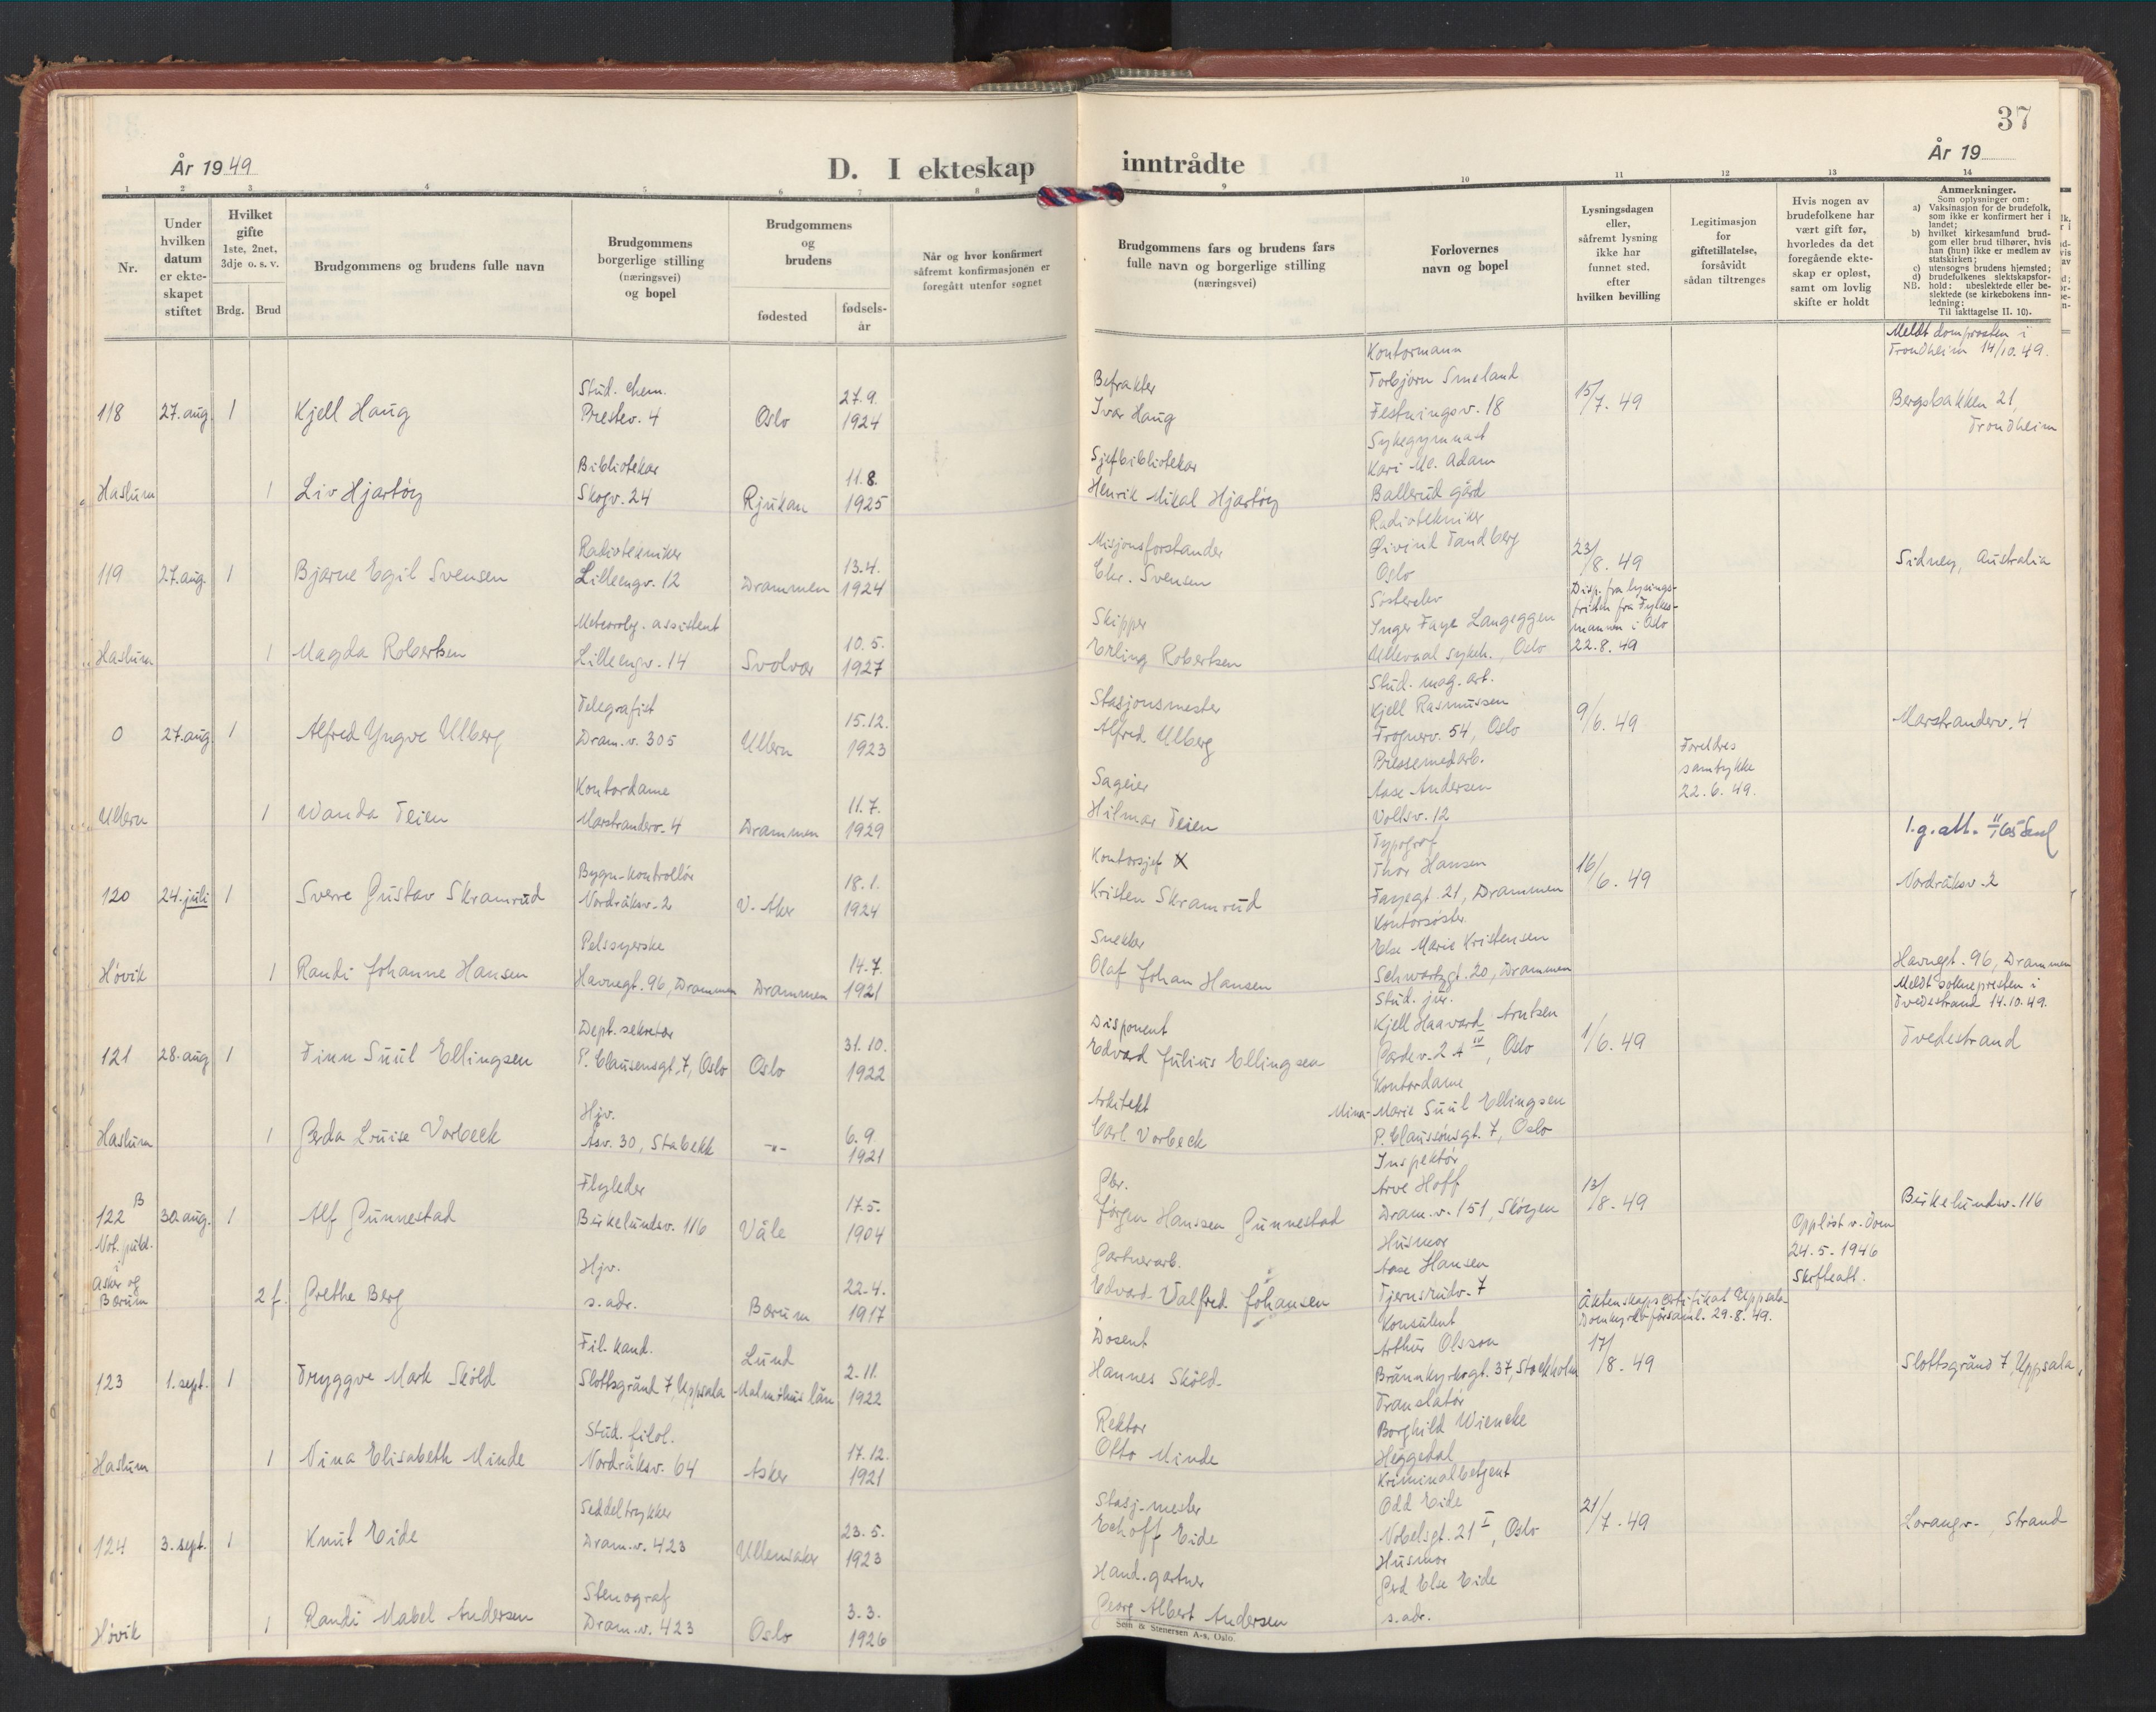 37
År 1949
D. I ekteskap inntrådte
År 19
1 2 3 4 5 6 7 8 9 10 11 12 13 14
Nr.
Under hvilken datum er ekteskapet stiftet
Hvilket gifte
1ste, 2net, 3dje o. s. v.
Brdg. Brud
Brudgommens og brudens fulle navn
Brudgommens borgerlige stilling (næringsvei) og bopel
Brudgommens og brudens
fødested
fødsels-år
Når og hvor konfirmert såfremt konfirmasjonen er foregått utenfor sognet
Brudgommens fars og brudens fars fulle navn og borgerlige stilling (næringsvei)
Forlovernes navn og bopel
Lysningsdagen eller, såfremt lysning ikke har funnet sted, efter hvilken bevilling
Legitimasjon for giftetillatelse, forsåvidt sådan tiltrenges
Hvis nogen av brudefolkene har vært gift før, hvorledes da det foregående ekteskap er opløst, samt om lovlig skifte er holdt
Anmerkninger.
Som oplysninger om:
a) Vaksinasjon for de brudefolk, som ikke er konfirmert her i landet;
b) hvilket kirkesamfund brudgom eller brud tilhører, hvis han (hun) ikke er medlem av statskirken;
c) utensogns brudens hjemsted;
d) brudefolkenes slektskapsforhold: ubeslektede eller beslektede (se kirkebokens innledning:
NB.
Til iakttagelse II. 10).
118 27. aug. 1 Kjell Haug
Stud. chem.
Prestev. 4
Oslo
27.9.
1924
Befrakter
Ivar Haug
Kontormann
Torbjørn Smeland
Festningsv. 18
15/7. 49
Meldt domprosten i
Trondheim 14/10. 49.
Bergsbakken 21,
Trondheim
Haslum 1 Liv Hjartøy
Bibliotekar
Skogv. 24
Rjukan
11.8.
1925
Sjefbibliotekar
Henrik Mikal Hjartøy
Sykegymnast
Kari Mc. Adam
Ballerud gård
119 27. aug. 1 Bjarne Egil Svensen
Radiotekniker
Lilleengv. 12
Drammen
13.4.
1924
Misjonsforstander
Chr. Svensen
Radiotekniker
Øivind Tandberg
Oslo
23/8. 49
Sidney, Australia
Haslum 1 Magda Robertsen
Meteorolog. assistent
Lilleengv. 14
Svolvær
10.5.
1927
Skipper
Erling Robertsen
Søsterelev
Inger Faye Langeggen
Ullevaal sykeh., Oslo
Disp. fra lysings-
fristen fra Fylkes-
mannen i Oslo
22.8.49
0 27. aug. 1 Alfred Yngve Ulberg
Telegrafist
Dram.v. 305
Ullern
15.12.
1923
Stasjonsmester
Alfred Ulberg
Stud. mag. art.
Kjell Rasmussen
Frognerv. 54, Oslo
9/6. 49
Marstranderv. 4
Ullern 1 Wanda Teien
Kontordame
Marstranderv. 4
Drammen
11.7.
1929
Sageier
Hilmar Teien
Pressemedarb.
Aase Andersen
Vollsv. 12
Foreldres
samtykke
22.6.49.
1.g. att.
120 24. juli 1 Sverre Gustav Skramrud
Bygn.kontrollør
Nordråksv. 2
V. Aker
18.1.
1924
Kontorsjef X
Kristen Skramrud
Typograf
Thor Hansen
Fayegt. 21, Drammen
16/6. 49
Nordråksv. 2
Høvik 1 Randi Johanne Hansen
Pelssyerske
Havnegt. 96, Drammen
Drammen
14.7.
1921
Snekker
Olaf Johan Hansen
Kontorsøster
Else Marie Kristensen
Schwartzgt. 20, Drammen
Havnegt. 96, Drammen
121 28. aug 1 Finn Suul Ellingsen
Dept. sekretær
P. Clausensgt. 7, Oslo
Oslo
31.10.
1922
Disponent
Edvard Julius Ellingsen
Stud. jur.
Kjell Haavard Arntsen
Gardev. 2 A IV, Oslo
1/6. 49
Meldt sokneprosten i
Tvedestrand 14.10.49.
Tvedestrand
Haslum 1 Gerda Louise Vorbeck
Hjv.
Åsv. 30, Stabekk
-"-
6.9.
1921
Arkitekt
Carl Vorbeck
Kontordame
Mina-Marie Suul Ellingsen
P. Claussønsgt. 7, Oslo
122 B 30 aug. 1 Alf Gunnestad
Not. publ.
i
Asker og
Bærum
Flyleder
Birkelundsv. 116
Våle
17.5.
1904
Gbr.
Jørgen Hansen Gunnestad
Inspektør
Arve Hoff
Dram.v. 151, Skøyen
13/8. 49
Birkelundsv. 116
2 f. Grethe Berg
Hjv.
s. adr.
Bærum
22.4.
1917
Gartnerarb.
Edvard Valfred Johansen
Husmor
Aase Hansen
Tjernsrudv. 7
Oppløst v. dom
24.5.1946
Skifteatt.
123 1. sept. 1 Tryggve Mark Sköld
Fil. kand.
Slottsgränd 7, Uppsala
Lund
Malmöhus län
2.11.
1922
Dosent
Hannes Sköld
Konsulent
Arthur Olsson
Brännkyrkagt. 37, Stockholm
Äktenskapscertifikat Uppsala
Domkyrkoförsaml. 29.8.49.
17/8. 49
Slottsgränd 7, Uppsala
Haslum 1 Nina Elisabeth Minde
Stud. filol.
Nordråksv. 64
Asker
17.12.
1921
Rektor
Otto Minde
Translatør
Borghild Wiencke
Heggedal
124 3. sept. 1 Knut Eide
Seddeltrykker
Dram.v. 423
Ullensaker
23.5.
1923
Stasj.mester
Echoff Eide
Kriminalbetjent
Odd Eide
Nobelsgt. 21 I, Oslo
21/7. 49
Lorangv., Strand
Høvik 1 Randi Mabel Andersen
Stenograf
Dram.v. 423
Oslo
3.3.
1926
Hand.gartner
Georg Albert Andersen
Husmor
Gerd Else Eide
s. adr.
Sem & Stenersen A-s, Oslo.